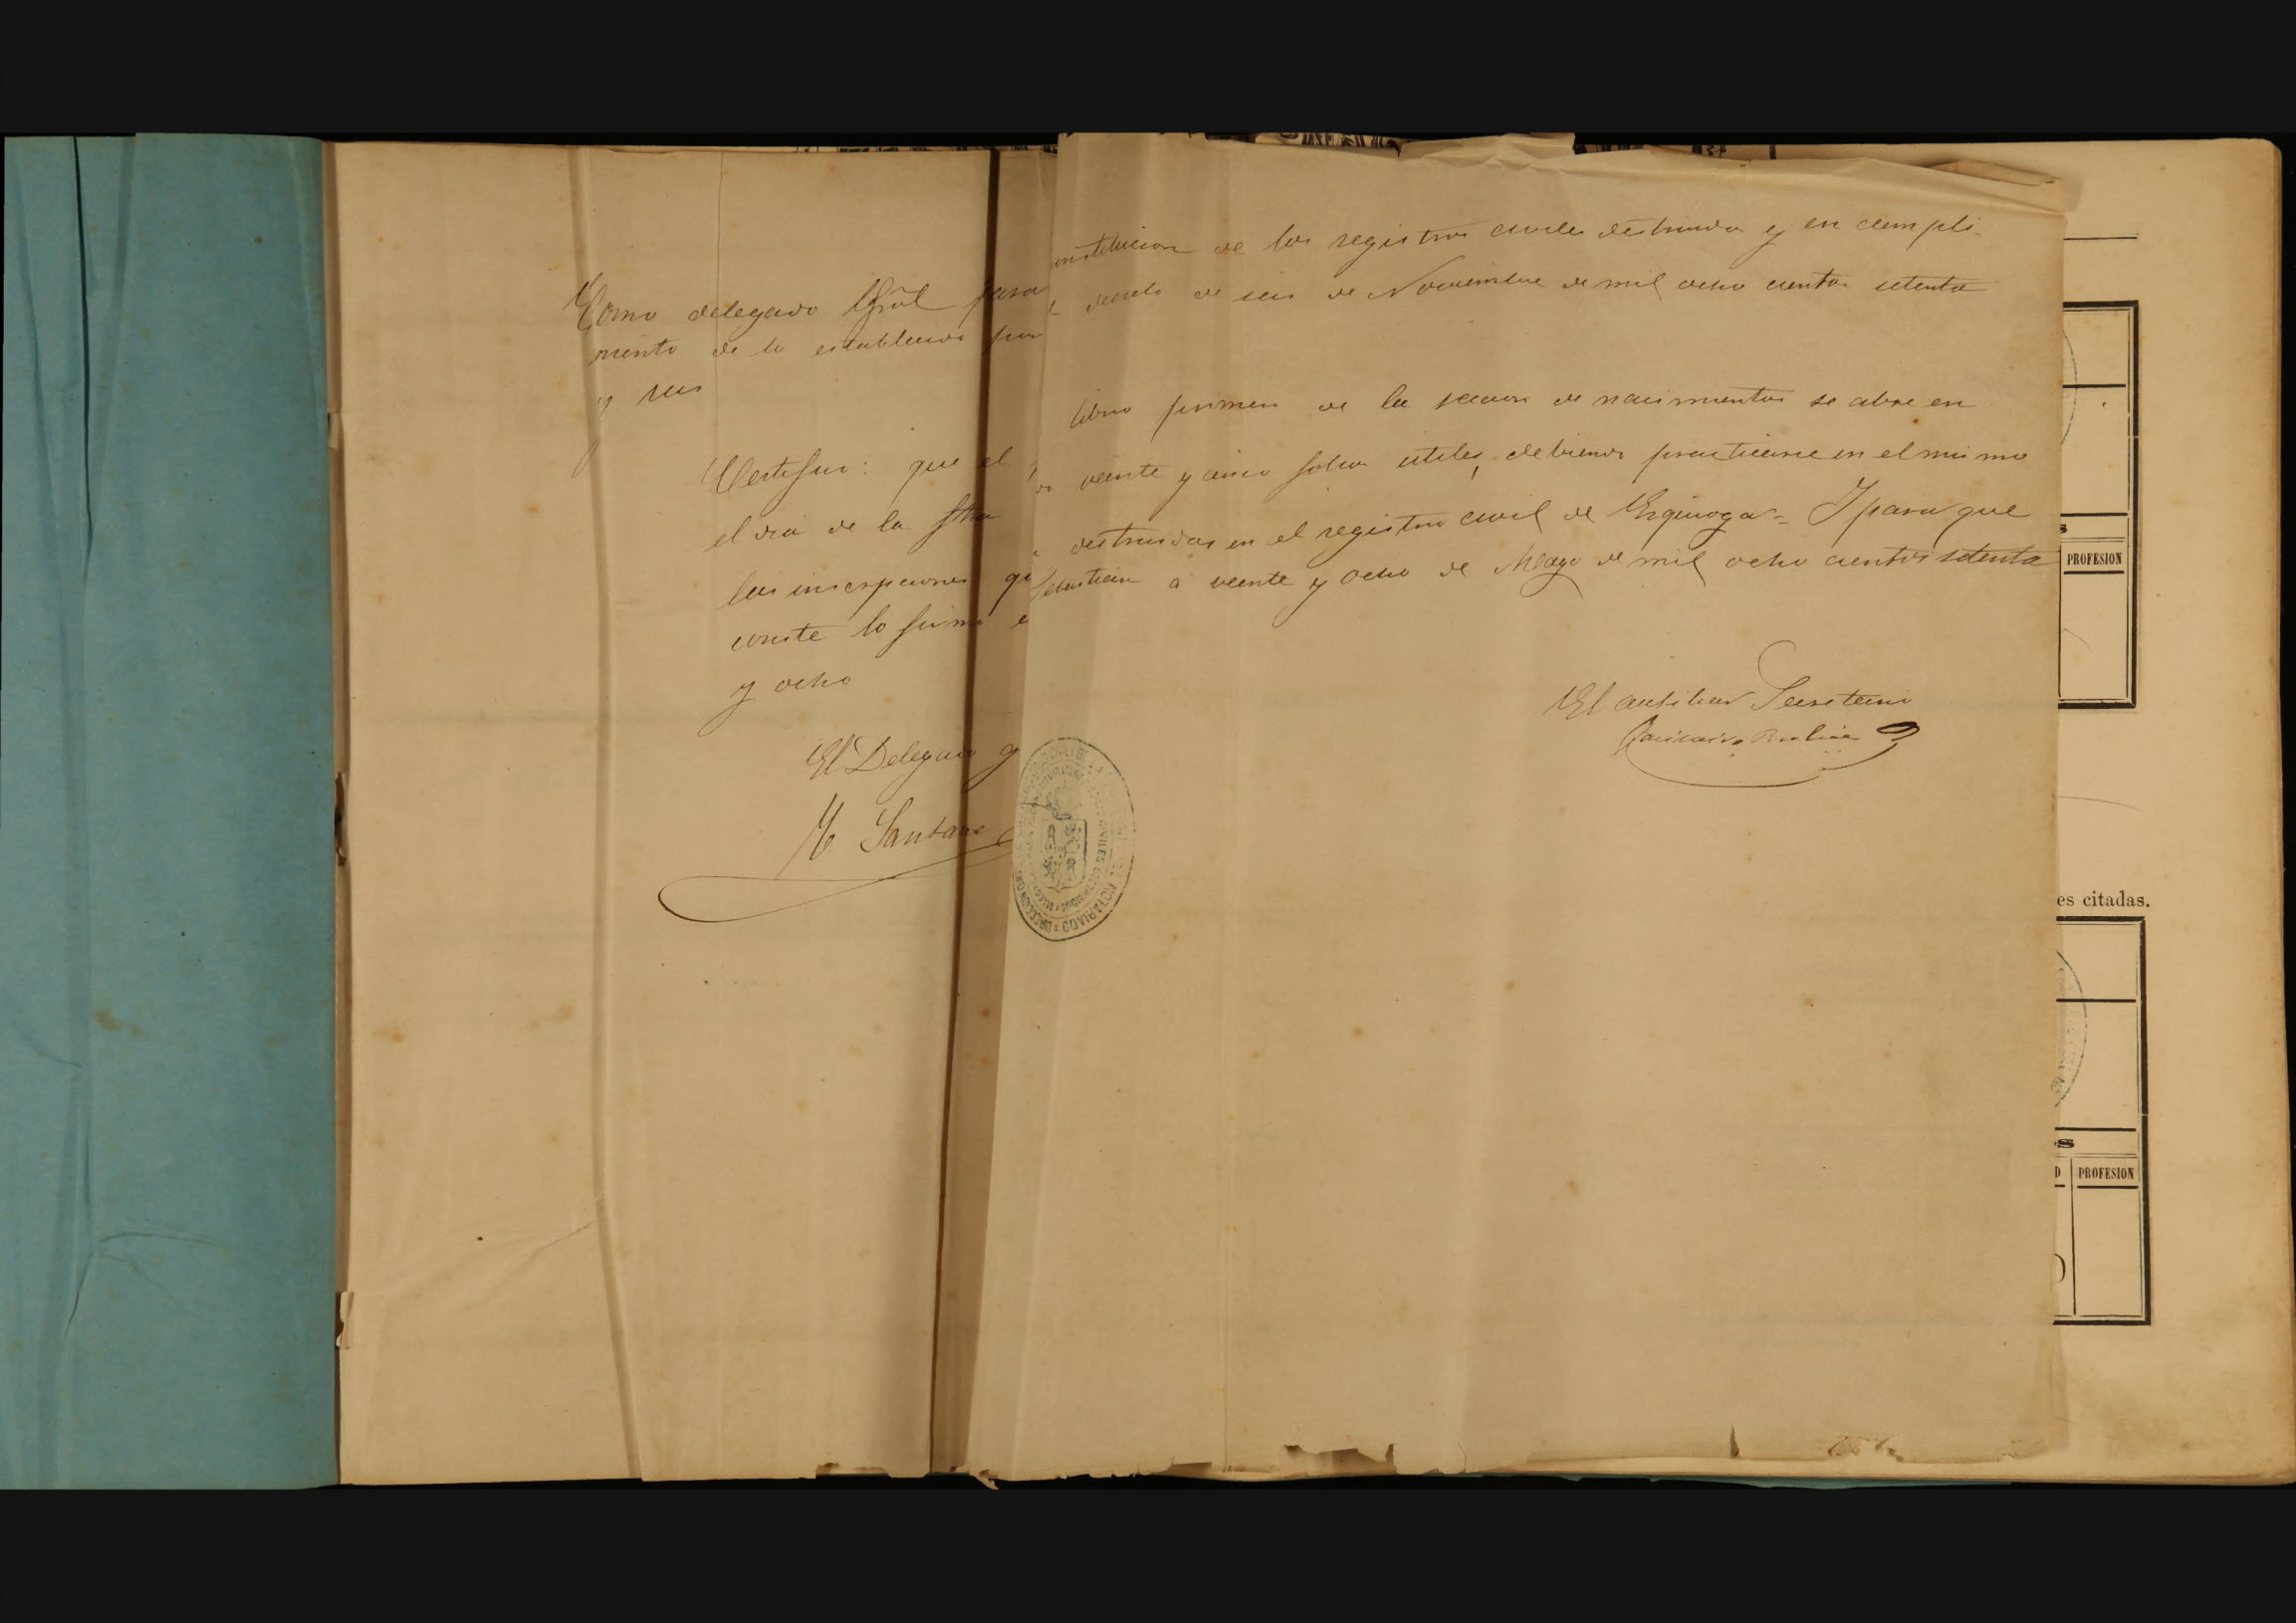 Como delegado Gral para
onstitucion de los registros civiles destruidos y en cumpli-
miento de lo establecido por
decreto de seis de Noviembre de mil ocho cientos setenta
y seis
Certifico: que el
libro primero de la seccion de nacimientos se abre en
el dia de la fha
veinte y cinco folios utiles, debiendo practicarse en el mismo
las inscripciones qu
destruidas en el registro civil de Ezquioga = Y para que
conste lo firmo e
Sebastian a veinte y ocho de Mayo de mil ocho cientos setenta
y ocho
El Delegado g
El ausiliar Secretario
PROFESION
es citadas.
S
D
PROFESION